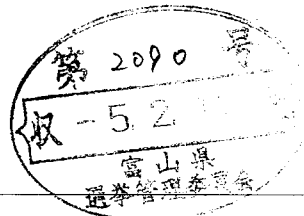 第 2090 号
収 -5.2
富山県
選挙管理委員会